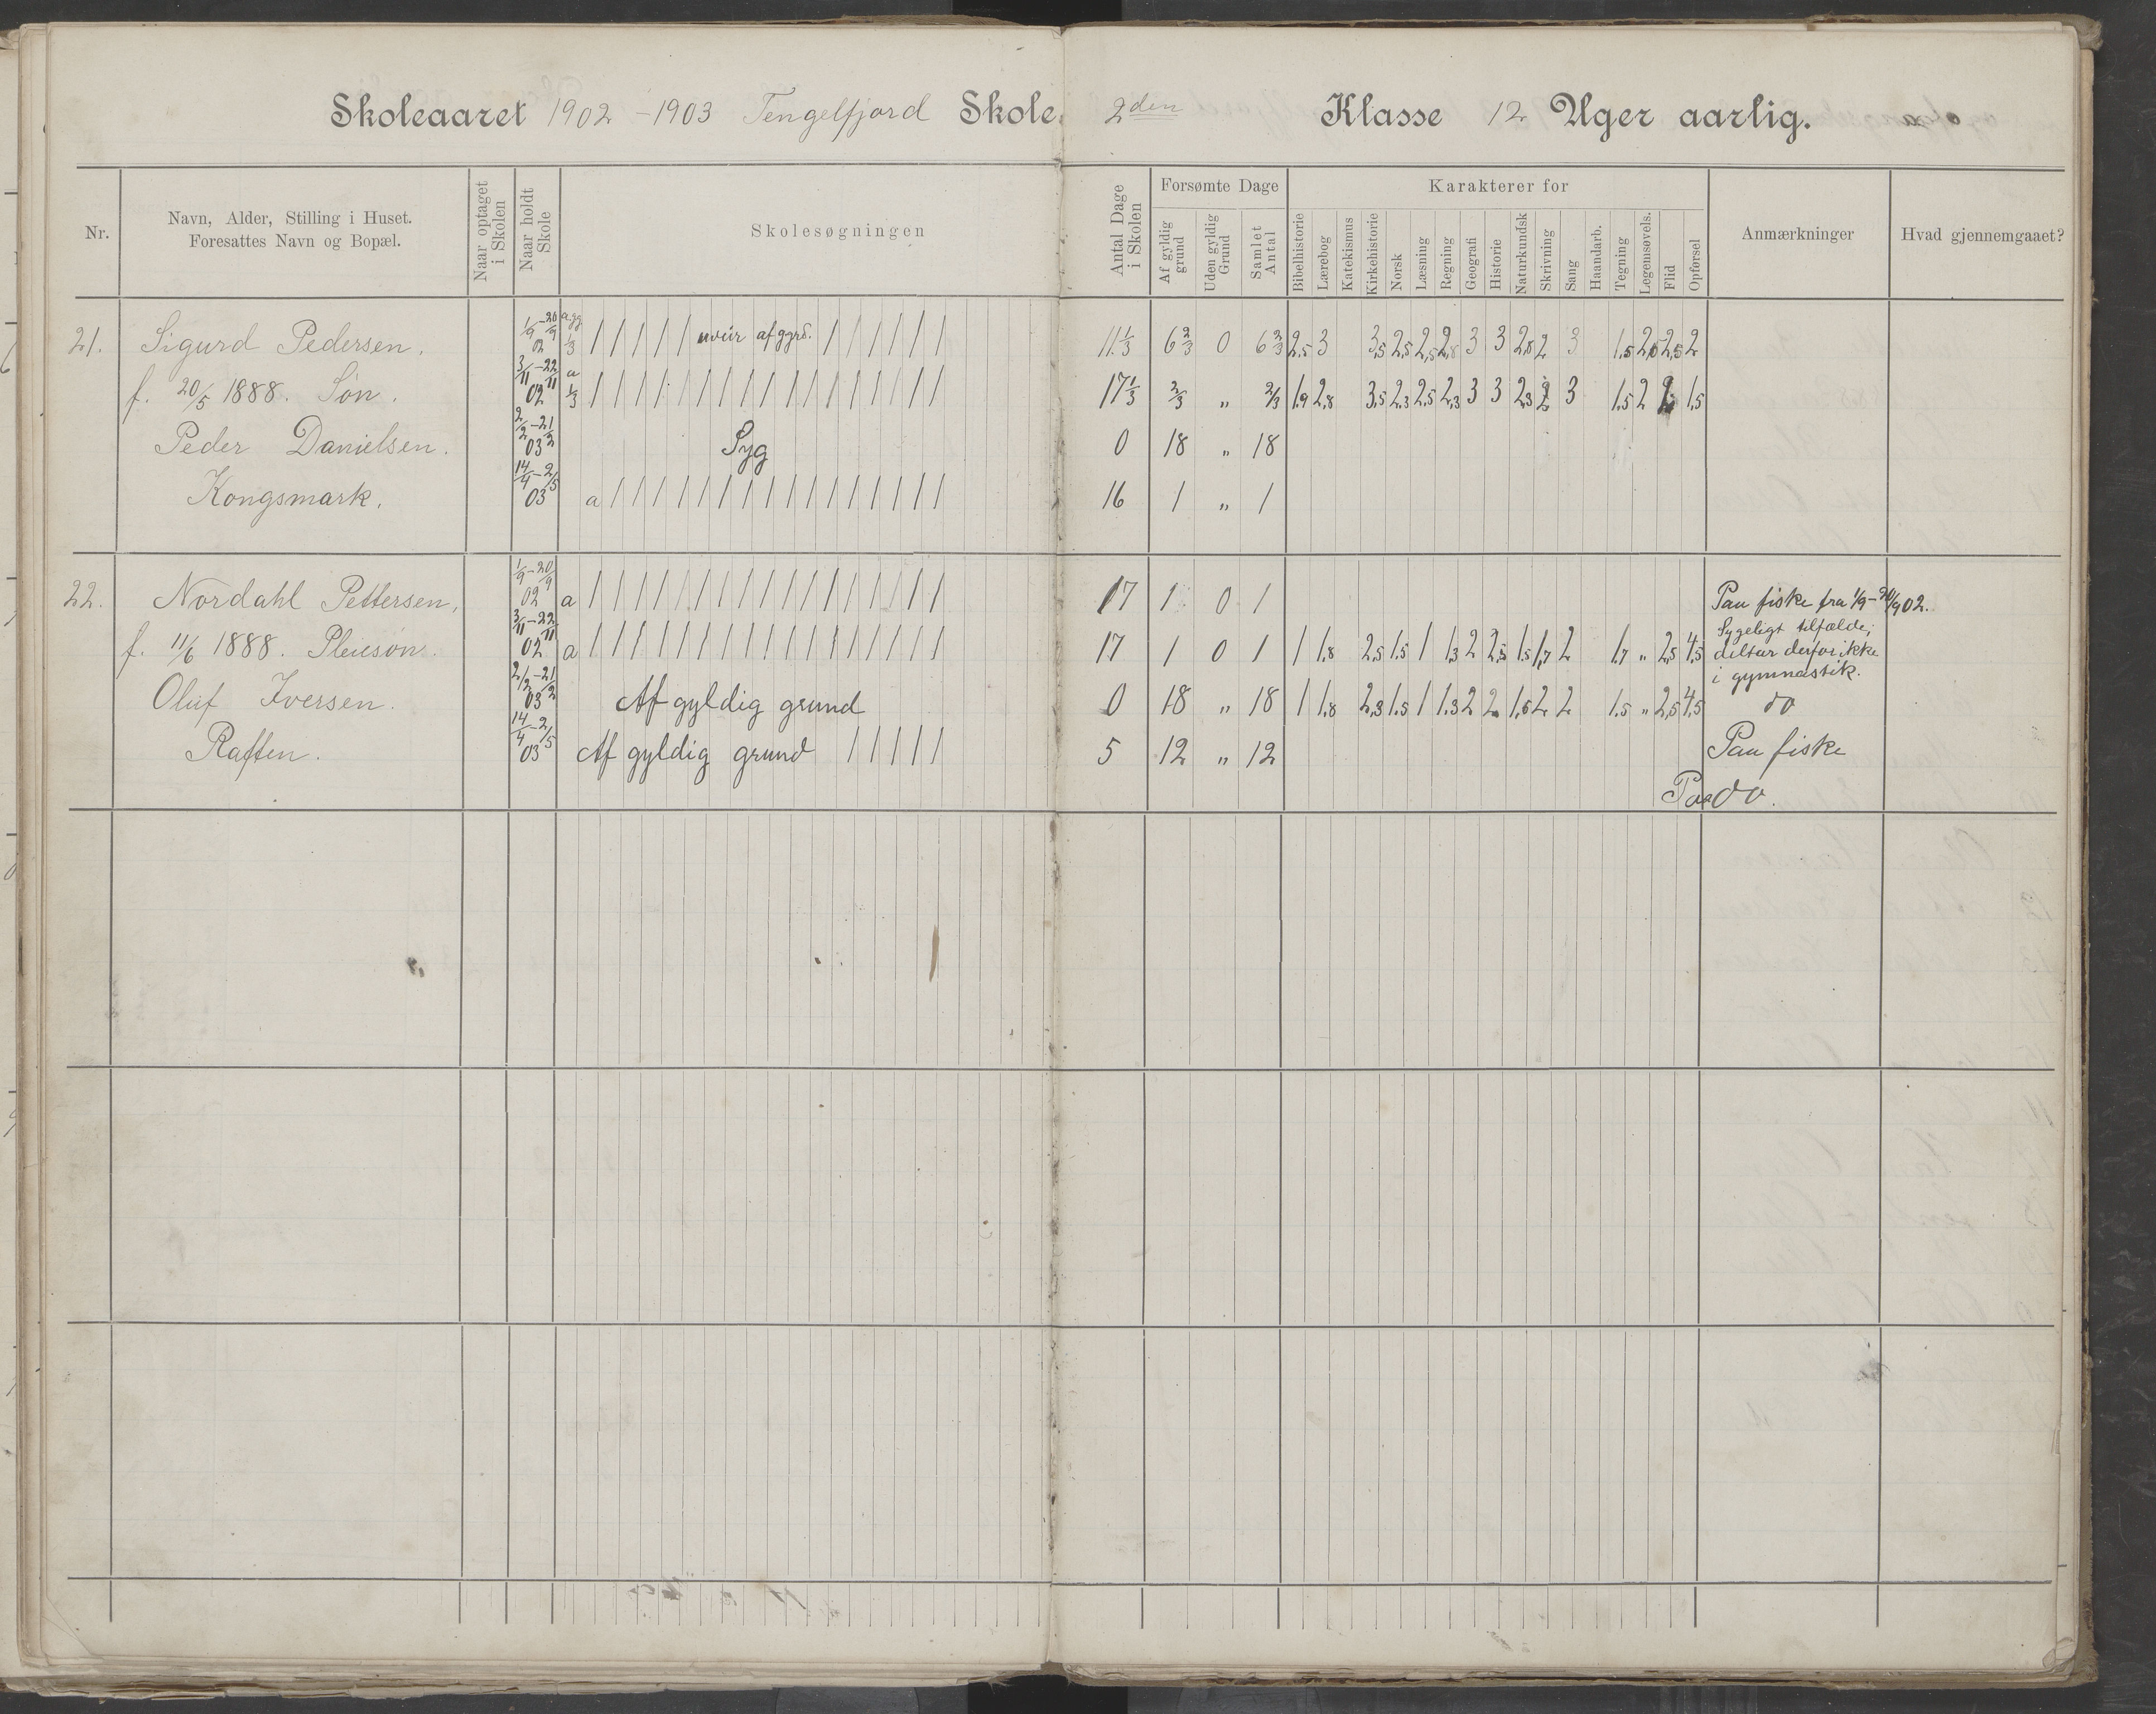 Skoleaaret 1902-1903 Tengelfjord Skole. 2den Klasse 12 Uger aarlig.
Nr. Navn, Alder, Stilling i Huset. Foresattes Navn og Bopæl. Naar optaget i Skolen Naar holdt Skole Skolesøgningen Antal Dage i Skolen Forsømte Dage Af gyldig grund Uden gyldig Grund Samlet Antal Karakterer for Bibelhistorie Lærebog Katekismus Kirkehistorie Norsk Læsning Regning Geografi Historie Naturkundsk Skrivning Sang Haandarb. Tegning Legemsøvels. Flid Opførsel Anmærkninger Hvad gjennemgaaet?
21. Sigurd Pedersen. 1/9-20/9 02 a.gg 1/3 / / / / / uveir af gyrd. / / / / / / 11 1/3 6 2/3 0 6 2/3 2,5 3 3,5 2,5 2,5 2,8 3 3 2,8 2 3 1,5 2,5 2,5 2
f. 20/5 1888. Søn. 3/11-22/11 02 a 1/3 / / / / / / / / / / / / / / / / / 17 1/3 2/3 " 2/3 1,9 2,8 3,5 2,3 2,5 2,3 3 3 2,3 2 3 1,5 2 2 1,5
Peder Danielsen. 2/2-21/2 03 Syg 0 18 " 18
Kongsmark. 14/4-2/5 03 a / / / / / / / / / / / / / / / / 16 1 " 1
22. Nordahl Pettersen, 1/9-20/9 02 a / / / / / / / / / / / / / / / / / 17 1 0 1 Paa fiske fra 1/9-20/9 02.
f. 11/6 1888. Pleiesøn. 3/11-22/11 02 a / / / / / / / / / / / / / / / / / 17 1 0 1 1 1,8 2,5 1,5 1 1,3 2 2,5 1,5 1,7 2 1,7 " 2,5 4,5 Sygeligt tilfælde;
deltar derfor ikke
i gymnastik.
Oluf Iversen. 2/2-21/2 03 Af gyldig grund 0 18 " 18 1 1,8 2,3 1,5 1 1,3 2 2 1,6 2 2 1,5 " 2,5 4,5 do
Raften. 14/4-2/5 03 Af gyldig grund / / / / / 5 12 " 12 Paa fiske
Paa do.